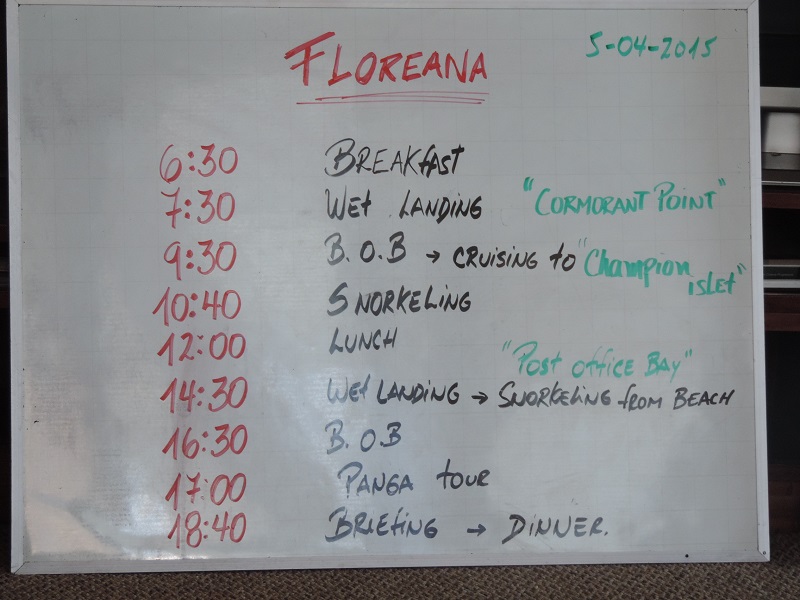 FLOREANA 5-04-2015
6:30 BREAKfAST
7:30 WEt LANDING "CORMORANT POINT"
9:30 B.O.B → CRUISING to "Champion isLet"
10:40 SNORKELING
12:00 LUNCH
"Post office Bay"
14:30 WEt LANDING → SNORKELING fROM BEACH
16:30 B.O.B
17:00 PANGA tOUR
18:40 BRIEfING → DINNER.